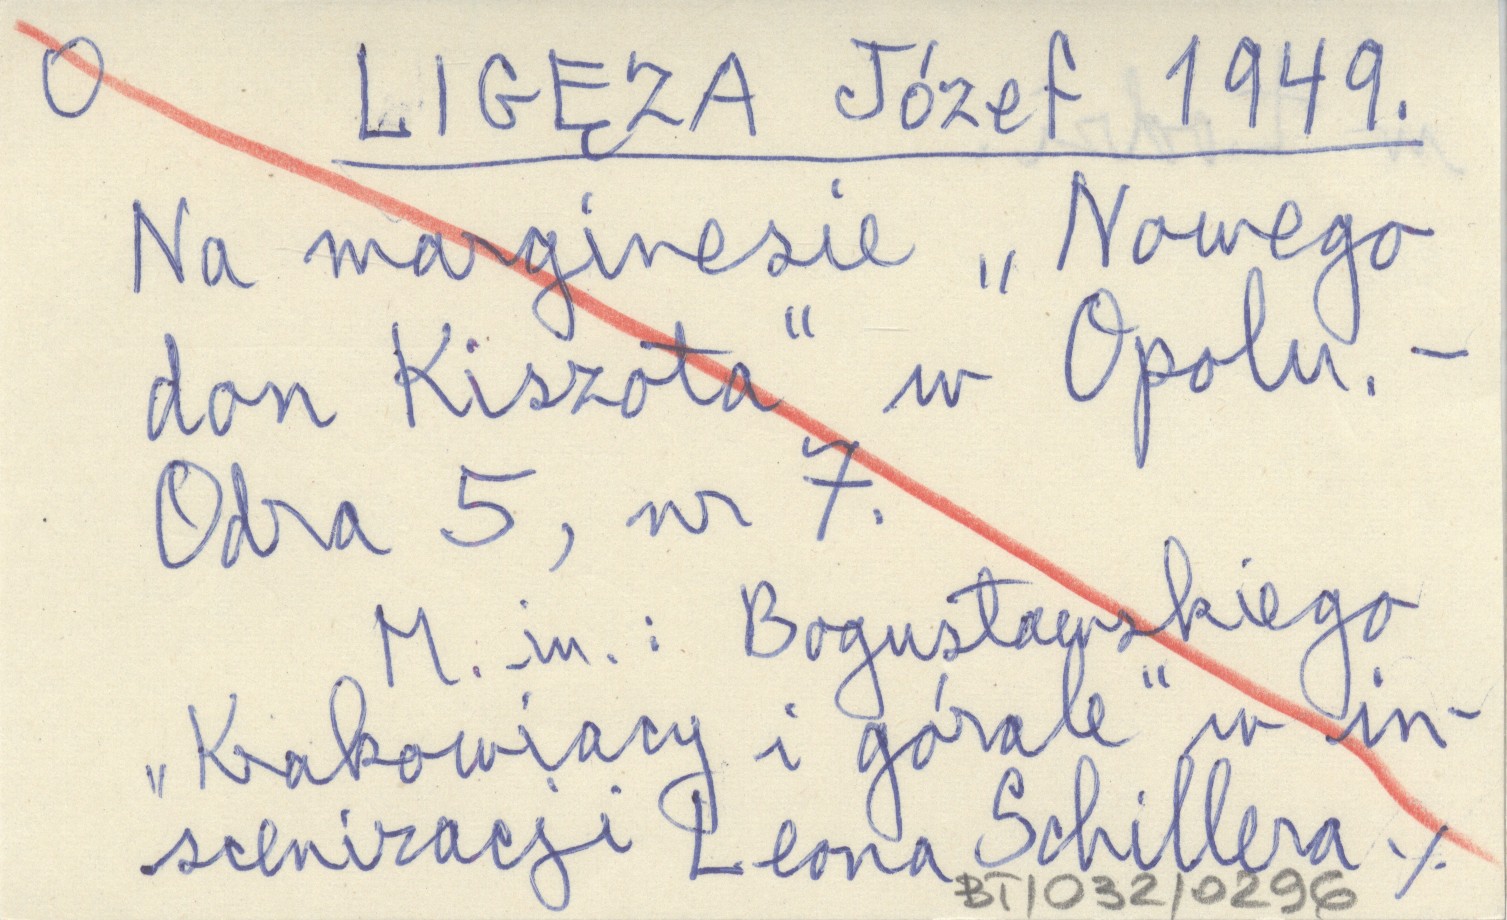 O LIGĘZA Józef 1949.
Na marginesie „Nowego
don Kiszota" w Opolu. –
Odra 5, nr 7.
M. in.: Bogusławskiego
„Krakowiacy i górale" w in-
scenizacji Leona Schillera ./.
BT/032/0296